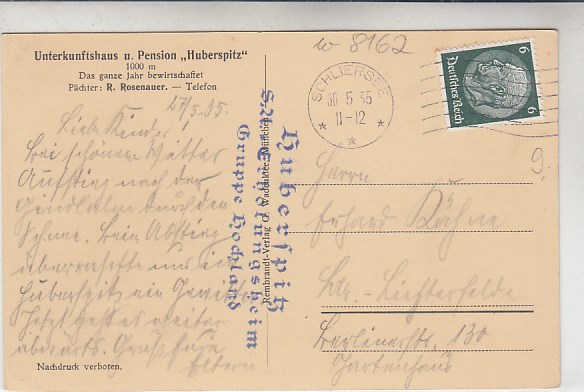 Unterkunftshaus u. Pension „Huberspitz“
1000 m
Das ganze Jahr bewirtschaftet
Pächter: R. Rosenauer. — Telefon
27/5.35.
Liebe Kinder!
Bei schönem Wetter
Aufstieg nach der
durch den
Schnee. Beim Abstieg
überraschte uns in
Huberspitz ein Gewitter
Jetzt geht es weiter
abwärts. Gruß Eure
Eltern
Nachdruck verboten.
Huberspitz
S.A. Erholungsheim
Gruppe Hochland
Rembrandt-Verlag G. München
w 8162
SCHLIERSEE
5 35
11-12
6 6
Deutsches Reich
9.
Herrn
Erhard Kühne
Bln.-Lichterfelde
Berlinerstr. 130
Gartenhaus